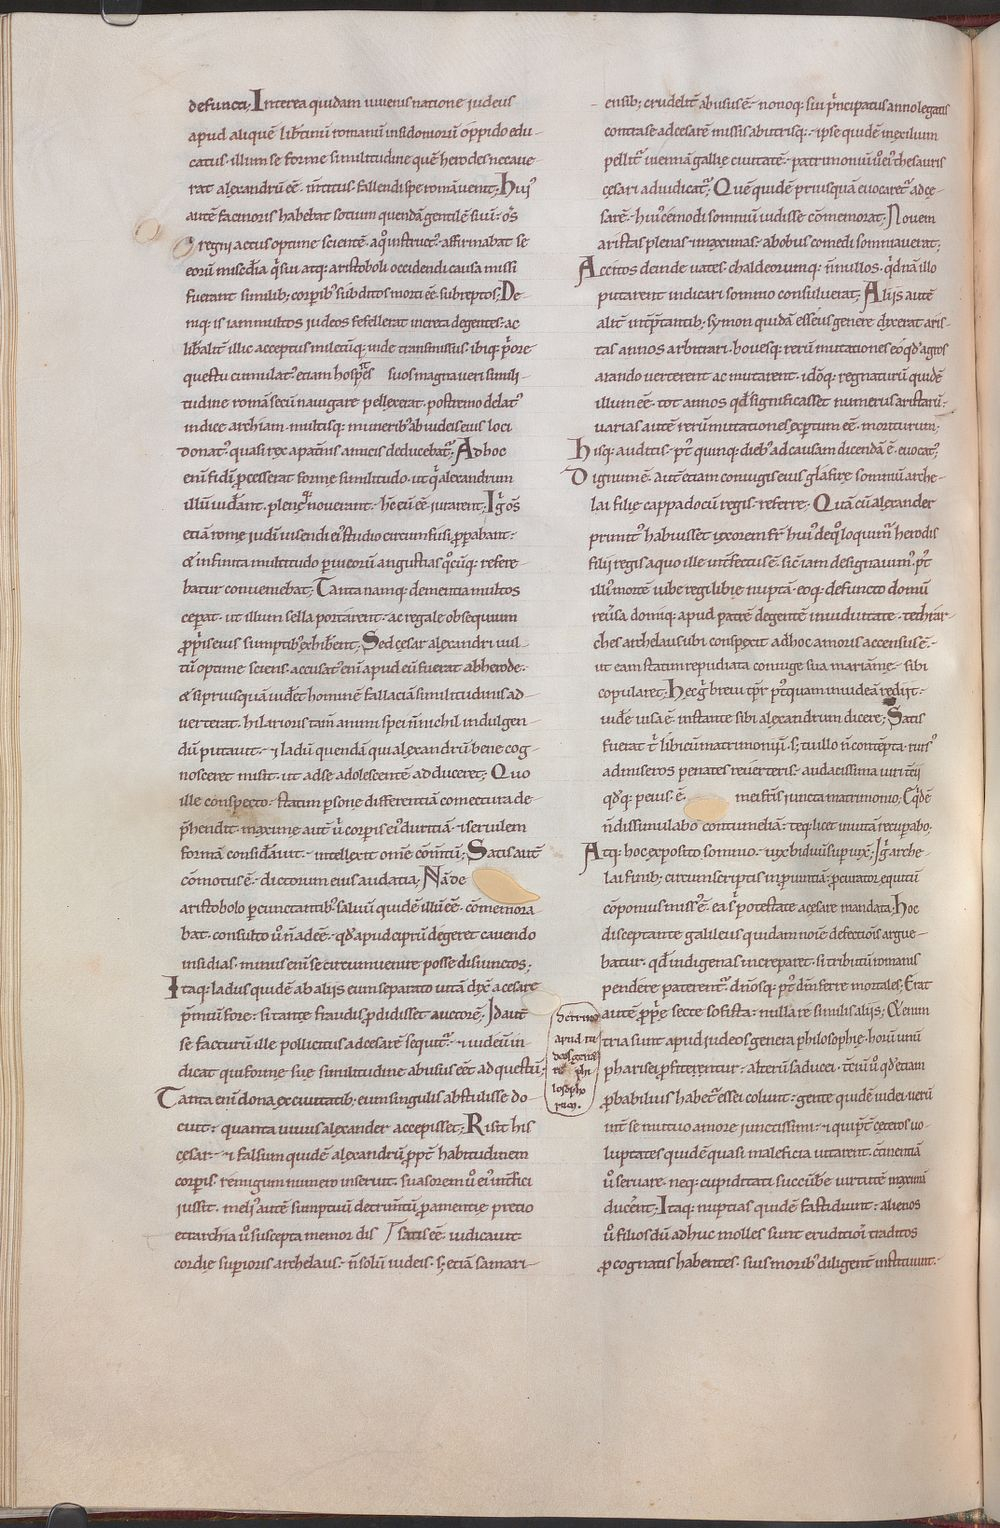 defuncti; Interea quidam iuuenis natione iudeus
apud aliquē lib̄tinū romanū in sidoniorū oppido edu-
catus. illum se forme similitudine quē herodes necaue
rat alexandrū eē. m̄titus. fallendi spe romā uenit; Hui᷒
autē facinoris habebat sotium quendā gentilē suū. om̄s
regni actus optime scientē. a q̊ instruct᷒. affirmabat se
eorū misedia q̇ sui atq; aristoboli occidendi causa missi
fuerant similib; corpib᷒ subditos morti eē subreptos; De-
niq; is iam multos iudeos fefellerat in creta degentes. ac
lib̄alit̄ illic acceptus miletūq; inde transmissus. ibiq; p̄ore
questu cumulat᷒. etiam hospites suos magna ueri simili-
tudine romā secū nauigare pellexerat. postremo delat᷒
in dicearchiam. multisq; munerib᷒ ab iudeis eius loci
donat᷒. quasi rex a pat̄nis amicis deducebat᷑; Ad hoc
eni fidī pcesserat forme similitudo. ut q̇ alexandrum
illū uid̄ant. pleneq; nouerant. hē cū eē iurarent; Ig̊ om̄s
etiā rome iudi uisendi ei᷒ studio circumfusi properabant.
& infinita multitudo p uicorū angustias q̊cūq; refere-
batur conueniebat; Tanta namq; dementia multos
ceperat. ut illum sella portarent. ac regale obsequium
propriis eius sumptib᷒ exhib̄ent; Sed cesar alexandri uul-
tū optime sciens. accusat᷒ eni apud eū fuerat ab herode.
& si priusquā uid̄et hominē fallaciā similitudinis ad-
uerterat. hilarioris tam̄ animi spei n̄nichil indulgen-
dū putauit. & ladū quendā qui alexandrū bene cog-
nosceret misit. ut ad se adolescentē adduceret; Quo
ille conspecto. statim psone differentiā coniectura de-
p̄hendit. maxime autē ū corpis ei᷒ duritiā. & seruilem
formā consid̄auit. intellexit om̄e com̄tū; Satis autē
cōmotus ē. dictorum eius audatia; Nā de
aristobolo pcunctantib᷒. saluū quidē illū eē. cōmemora-
bat. consulto ū n̄ adeē. qđ apud ciprū degeret cauendo
insidias. minus eni se circumuenire posse disiunctos;
Itaq; ladus quidē ab aliis eum separato uitā dix̄ a cesare
p̄miū fore. si tante fraudis pdidisset auctorē; Id autē
se facturū ille pollicitus ad cesarē sequit᷑. & iudeū in-
dicat qui forme sue similitudine abusus eēt ad questū;
Tanta eni dona ex ciuitatib; eum singulis abstulisse do-
cuit. quanta uiuus alexander accepisset; Risit his
cesar. & falsum quidē alexandrū ppt̄ habitudinem
corpis. remigum numero inseruit. suasorem ū ei᷒ int̄fici
iussit. meli᷒ autē sumptuū detrim̄tū p amentie precio
etrarchia ū suscepta memor dis satis eē. iudicauit.
cordie supioris archelaus. n̄ solū iudeis. s; etiā samari-
ensib; crudelit̄ abusus ē. nonoq; sui p̄ncipatus anno legatis
contra se ad cesarē missis ab utrisq;. ipse quidē in exilium
pellit᷑ uiennā gallie ciuitatē. patrimoniū ū ei᷒ thesauris
cesari adiudicat᷑; Quē quidē priusquā euocaret᷑ ad ce-
sarē. hui᷒cemodi somniū uidisse cōmemorat; Nouem
aristas plenas. maximas. a bobus comedi somniauerat;
Accitos deinde uates. chaldeorumq; n̄nullos. q̇dnā illo
putarent indicari somnio consuluerat; Aliis autē
alit̄ int̄p̄tantib; symon quidā esseus genere dixerat aris-
tas annos arbitrari. bouesq; rerū mutationes eo qđ agros
arando uerterent ac mutarent. idoq; regnaturū quidē
illum eē. tot annos qđ significasset numerus aristarū.
uarias autē rerū mutationes exptum eē. moriturum;
Hisq; auditis. p᷒t quinq; dieb᷒ ad causam dicendā ē. euocat᷒;
Dignum ē. autē etiam coniugis eius glafire somniū arche-
lai filie cappadocū regis. referre. Quā cū alexander
primit᷒ habuisset uxorem fr̄ hui᷒ de q̊ loquim᷑ herodis
filii regis a quo ille int̄fectus ē. sic̄ iam designauim᷒. p᷒t
illi᷒ mortē iube regi libie nuptā. eoq; defuncto domū
reuersa. domiq; apud patrē degentē in uiduitate. tethrar-
ches archelaus ubi conspexit ad hoc amoris accensus ē.
ut eam statim repudiata coniuge sua mariāne. sibi
copularet; Hec g̊ breui tp̄r p᷒t quam in iudeā rediit.
uidē uisa ē. instante sibi alexandrum dicere; Satis
fuerat t̄ libicum matrimoniū. s; tu illo n̄ contēpta. rurs᷒
ad miseros penates reuerteris. audacissima uiri t̄tii
qđq; peius ē. mei fr̄is iuncta matrimonio; Cq̇dē
n̄ dissimulabo contumeliā. teq; licet inuitā recuperabo;
Atq; hoc exposito somnio. uix biduū supuix; Ig̊ arche-
lai finib; circumscriptis in puintiā. pcurator equitū
cōponius miss᷒ ē. ea s̄ potestate a cesare mandata; Hoc
disceptante galileus quidam noīe defectiōis argue-
batur. qđ indigenas increparet. si tributū romanis
pendere paterent᷑. dn̄osq; p᷒t dm̄ ferre mortales; Erat
autē pprie secte sofista. nulla re similis aliis; Et enim
tria sunt apud iudeos genera philosophie. horū unū
pharisei pfiterentur. alterū saducei. t̄tiū ū qđ etiam
pbabilius habet᷑ essei colunt. gente quidē iudei. uerū
int̄ se mutuo amore iunctissimi. & qui p̄t̄ ceteros uo-
luptates quidē quasi maleficia uitarent. cōtinentiā
ū seruare. neq; cupiditati succūb̄e uirtutē maximā
ducent; Itaq; nuptias quidē fastidiunt. alienos
ū filios dū adhuc molles sunt eruditioi traditos
p cognatis habentes. suis morib᷒ diligent̄ instituunt.
De trino
apud iu
deos gene
re phi
losopho
rum.